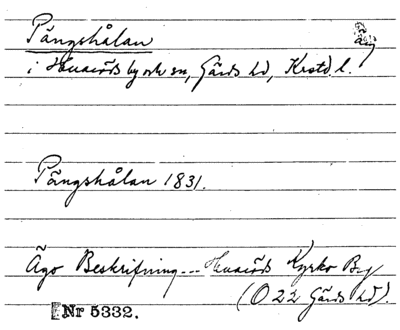 Pångshålan
i Huaröds by och sn, Gärds hd, Krstd. l.
Pångshålan 1831.
Ägo Beskrifning --- Huaröds Kyrko By
(O 22 Gärds hd).
Nr 5332.